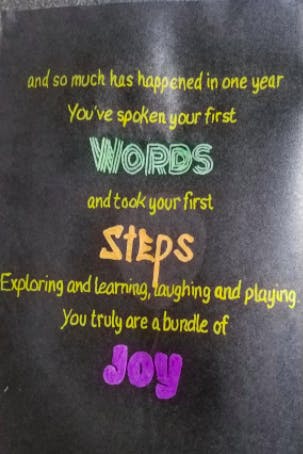 and so much has happened in one year
You've spoken your first
WORDS
and took your first
Steps
Exploring and learning, laughing and playing.
You truly are a bundle of
Joy